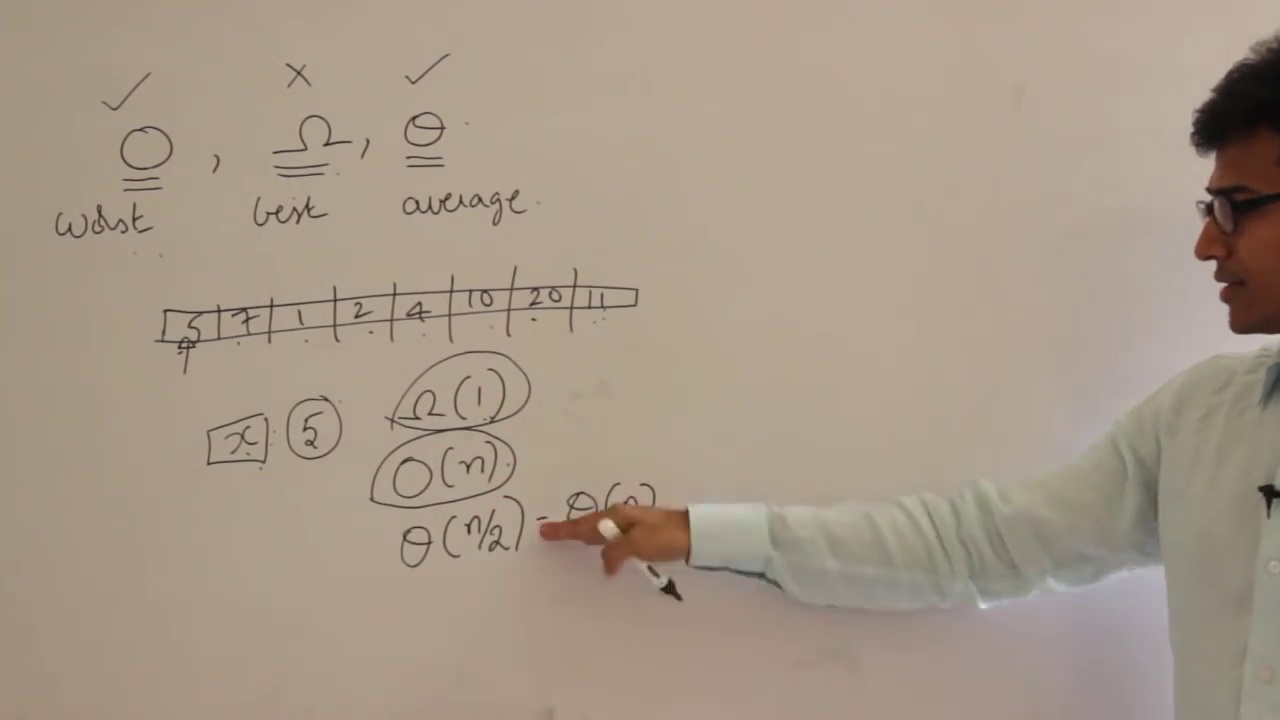 ✓ × ✓
O, Ω, θ
worst best average
5 7 1 2 4 10 20 11
x 5 Ω(1)
O(n)
θ(n/2) = θ(n)